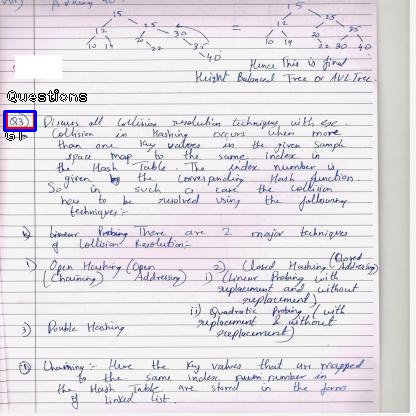 Adding 40
15 15
12 25 30 12 30
10 14 22 35 10 14 25 35
40 20 22 30 40
=
Hence This is final
Height Balanced Tree or AVL Tree.
Questions
Q3) Discuss all Collision resolution techniques with exc.
Collision in Hashing occurs when more
than one Key values in the given sample
space map to the same index in
the Hash Table. The index number is
given by the corresponding Hash function.
So in such a case the Collision
has to be resolved using the following
techniques:-
Linear Probing There are 2 major techniques
of Collision Resolution:-
1) Open Hashing (Open Addressing) (Chaining)
2) Closed Hashing (Closed Addressing)
i) (Linear Probing with
replacement and without
replacement)
ii) Quadratic Probing (with
replacement & without
replacement)
3) Double Hashing
① Chaining:- Here the Key values that are mapped
to the same index number in
the Hash Table are stored in the form
of linked list.